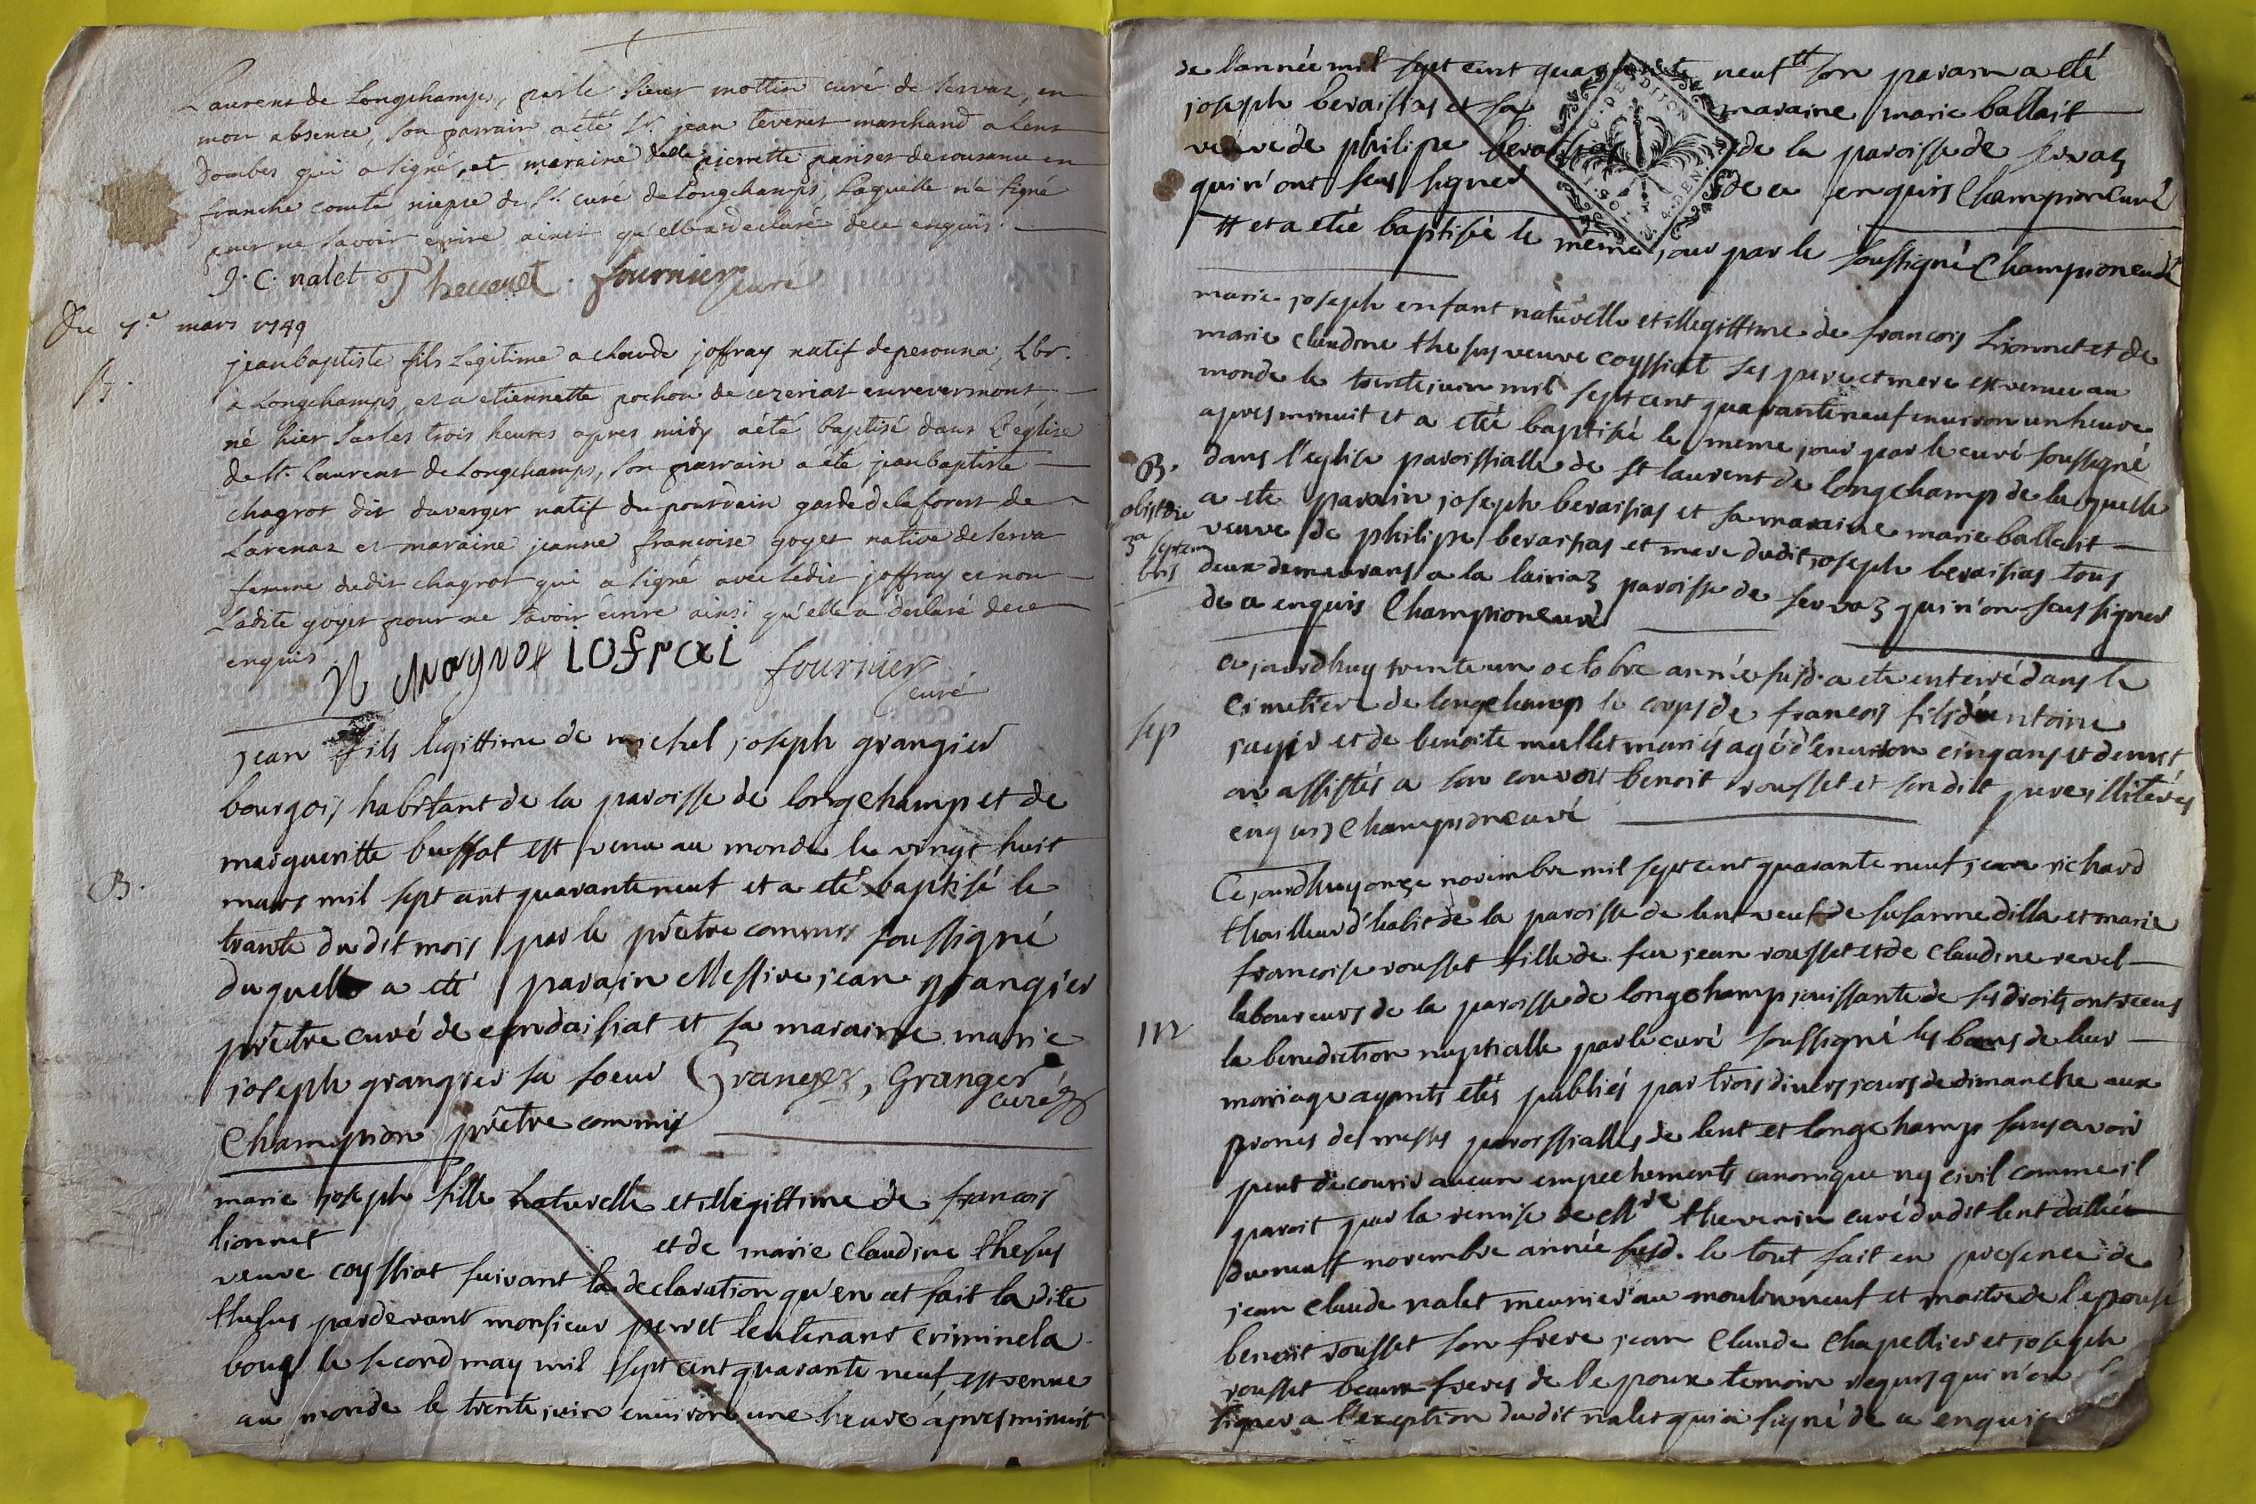 Laurent de Longchamps, par le Sieur mottin curé de Servaz, en
mon absence, son parrain a été Sr. jean tevenet marchand a Lent
dombes qui a signé, et maraine delle pierrette pariset de cousance en
franche comté niepce du Sr. curé de Longchamps, Laquelle n'a signé
pour ne Savoir ecrire ainsi qu'elle a declaré de ce enquis.
J. C. nalet Thevenet fournier curé
Du 7.e mars 1749
B.
jean baptiste fils Legitime a claude joffray natif de perouna, Lbr.
a Longchamps, et a etiennette pochon de cezeriat en revermont,
né hier Sur les trois heures apres midy a été baptisé dans L'église
de St. Laurent de Longchamps, Son parrain a été jean baptiste
chagrot dit duverger natif du pourdain garde de la forest de
Larenaz et maraine jeanne francoise goyet native de Serva
femme dudit chagrot qui a signé avec Ledit joffray et non
Ladite goyet pour ne Savoir ecrire ainsi qu'elle a declaré de ce
enquis
N chagrot iofrai fournier
curé
jean fils legittime de michel joseph grangier
bourgois habitant de la paroisse de longchamp et de
margueritte buffat est venu au monde le vingt huit
B.
mars mil sept cent quarante neuf et a eté baptisé le
trante du dit mois par le prêtre commis soussigné
duquell a eté parain Messire jean grangier
prêtre curé de condaisiat et sa maraine marie
joseph grangier sa soeur Granger, Granger
curé
Champion prêtre commis
marie joseph fille naturelle et illegittime de francois
lionnet et de marie claudine thesus
veuve coyssiat suivant la declaration qu'en at fait la dite
thesus pardevant monsieur perret leutenant criminel a
bourg le second may mil sept cent quarante neuf est venue
au monde le trente juin environ une heure apres minuit
de l'année mil sept cent quarante neuf # son parain a eté
joseph beraisias et sa maraine marie ballait
veuve de philipe beraisias de la paroisse de servaz
qui n'ont seus signer de ce enquis Champion curé
# et a etée baptisée le même jour par le soussigné Champion curé
G. DE DIJON
4. DEN
1. SOL
marie joseph enfant naturelle et illegittime de francois Lionnet et de
marie claudine thesus veuve coyssiat ses pere et mere est venue au
monde le trente juin mil sept cent quarante neuf environ un heure
apres minuit et a etée baptisée le meme jour par le curé soussigné
B.
dans l'eglise paroissialle de st laurent de longchamp de laquelle
a eté parain joseph beraisias et sa maraine marie ballait
obiit die
3a septem
bris
veuve de philipe beraisias et mere dudit joseph beraisias tous
deux demeurans a la lairiaz paroisse de servaz qui n'on seus signer
de ce enquis Champion curé
ce jourdhuy trente un octobre année susd. a eté enterré dans le
cimetier de longchamp le corps de francois fils d'antoine
sep
et de benoite mullet mariés agé d'environ cinq ans et demit
on assistés a son convoit benoit rousset et son dit pere illiterés
enquis Champion curé
Ce jourdhuy onze novembre mil sept cent quarante neuf jean richard
thailleur d'habit de la paroisse de lent veuf de susanne dilla et marie
francoise rousset fille de feu jean rousset et de claudine revel
laboureurs de la paroisse de longchamp jouissante de ses droits ont receus
m
la benediction nuptialle par le curé soussigné les bans de leur
mariage ayants etés publiés par trois divers jours de dimanche aux
prones des messes paroissialles de lent et longchamp sans avoir
peut decouvrir aucun empechements canonique ny civil comme il
parait par la remise de Mre thevenin curé dudit lent dattée
du neuf novembre année susd. le tout fait en presence de
jean claude nalet meunier au moulin neuf et maitre de l'epouse
benoit rousset son frere jean claude chapellier et joseph
rousset beaux freres de l'epoux temoin requis qui n'on
signer a l'exeption du dit nalet qui a signé de ce enquis